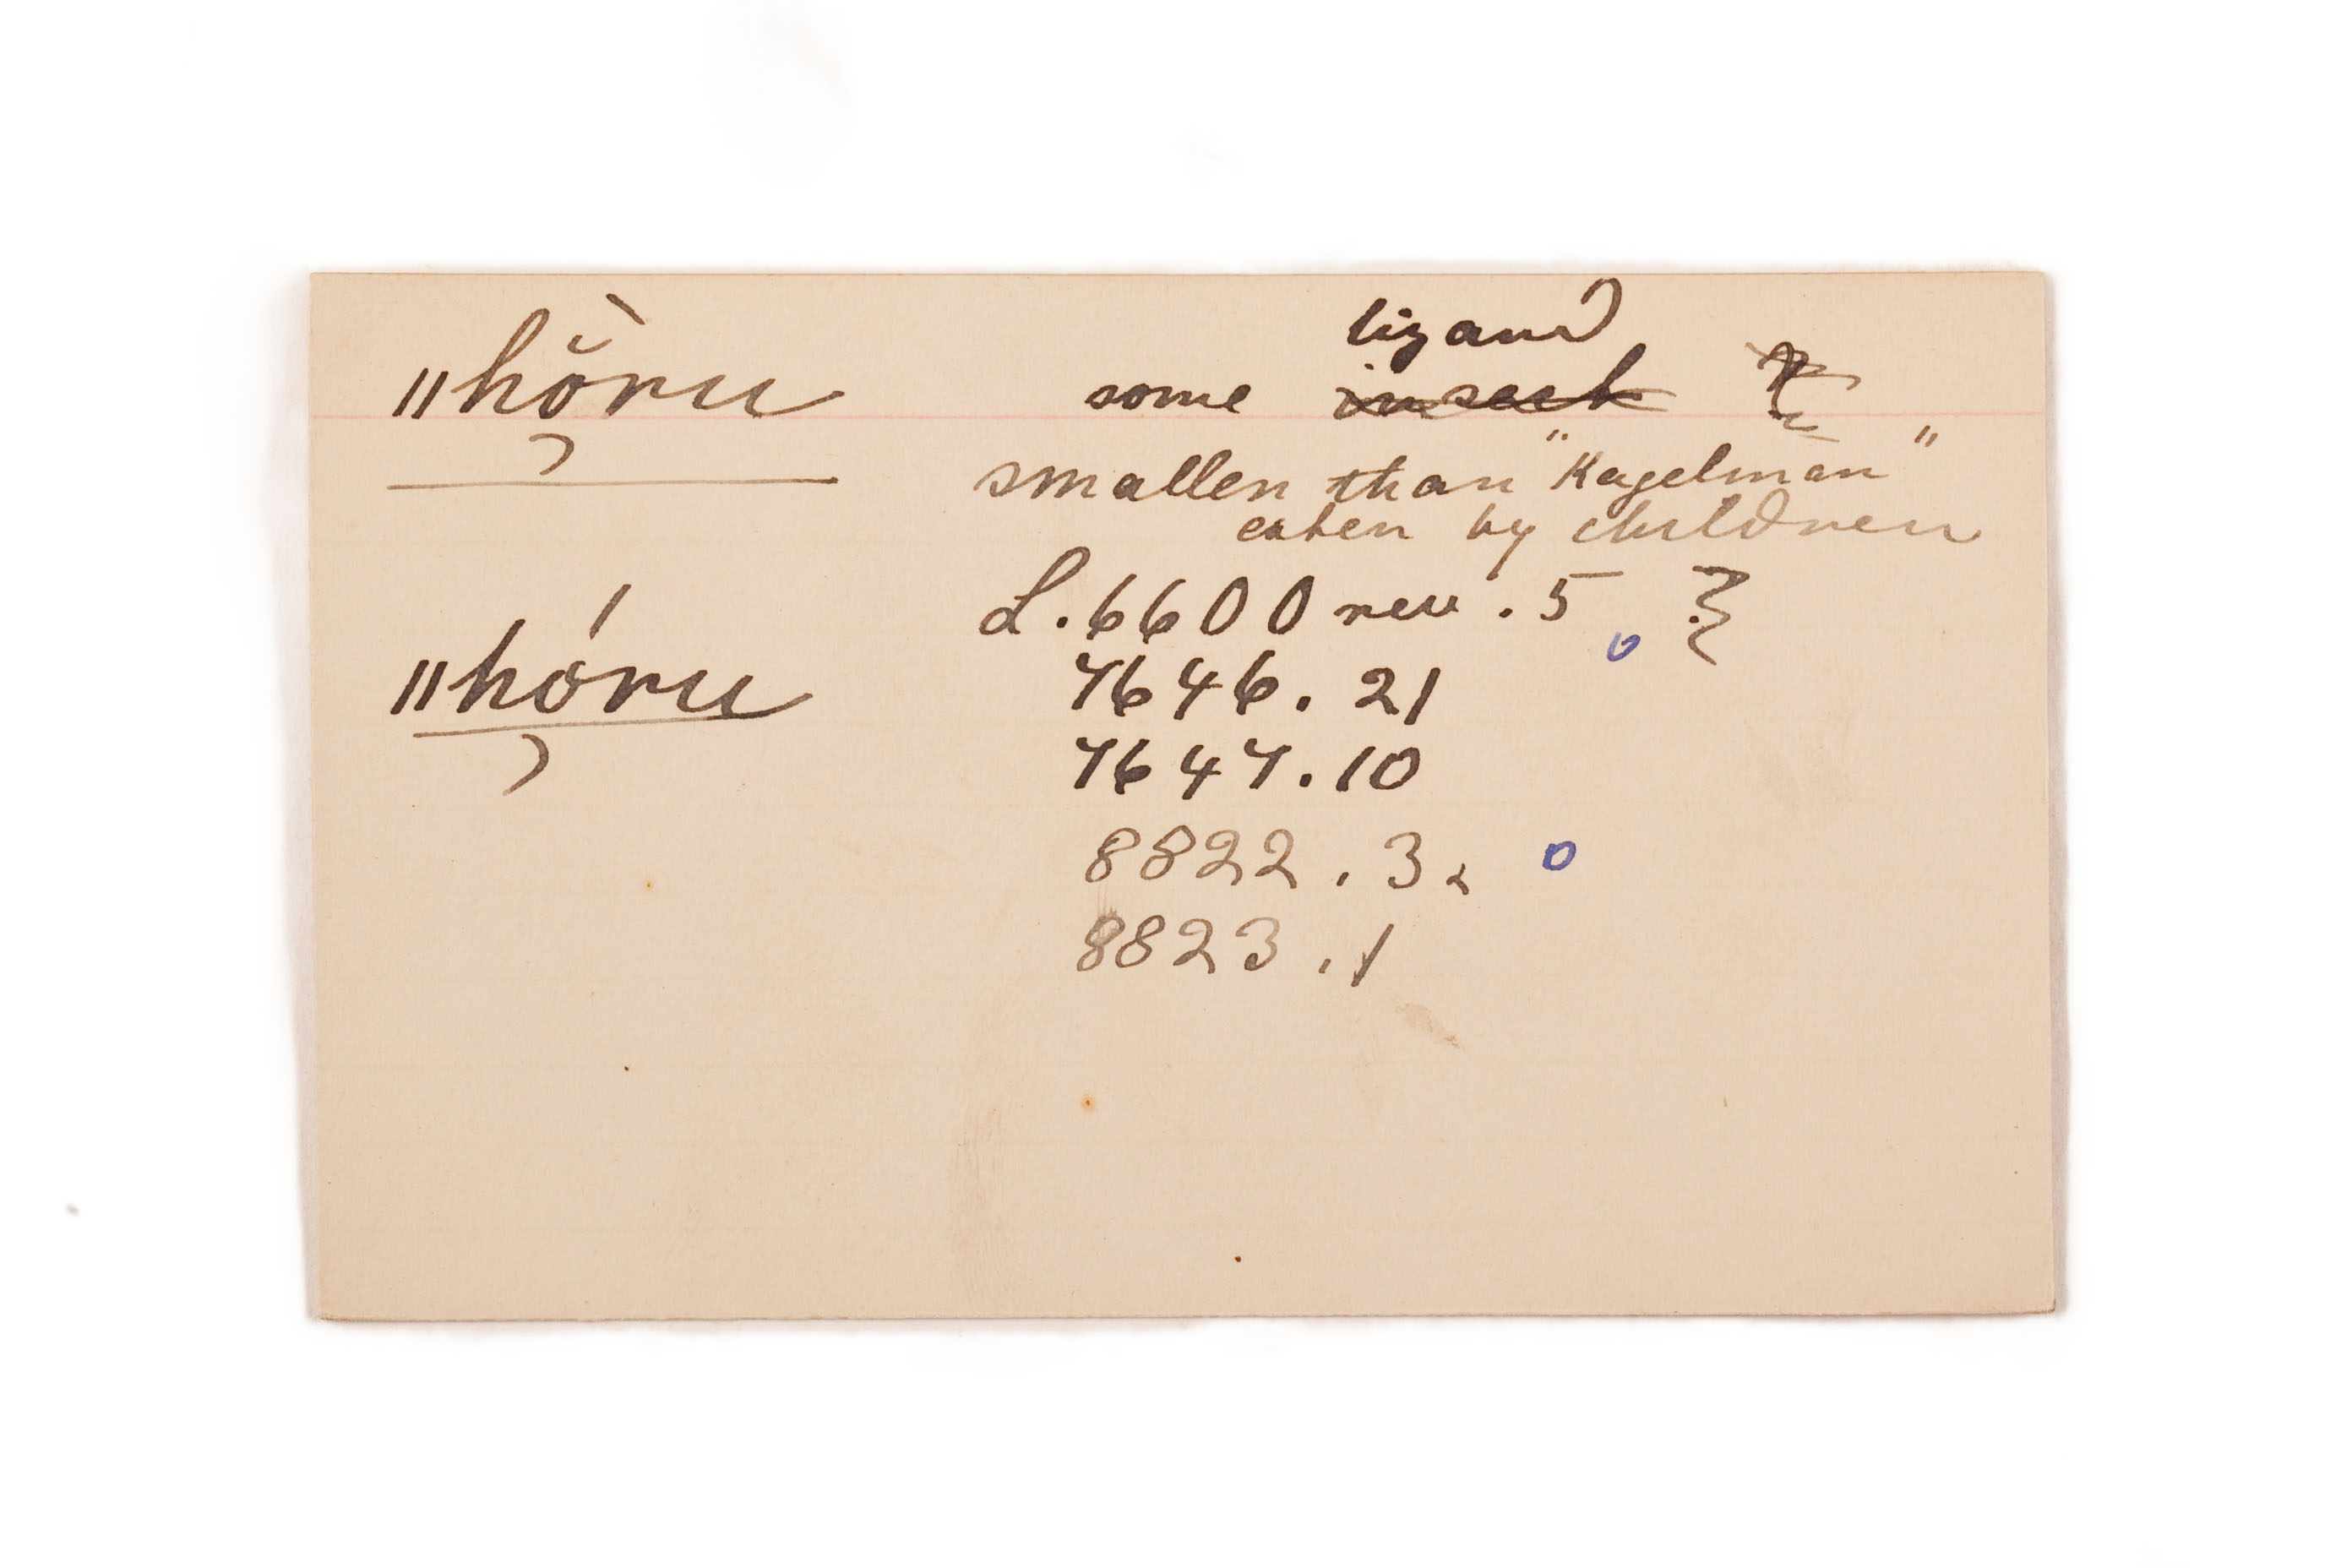 lizard
ǁhŏ̀ru some insect
smaller than "Kagelman"
eaten by children
L. 6600 rev. 5
ǁhóru 7646. 21
7647. 10
8822. 3.
8823. 1